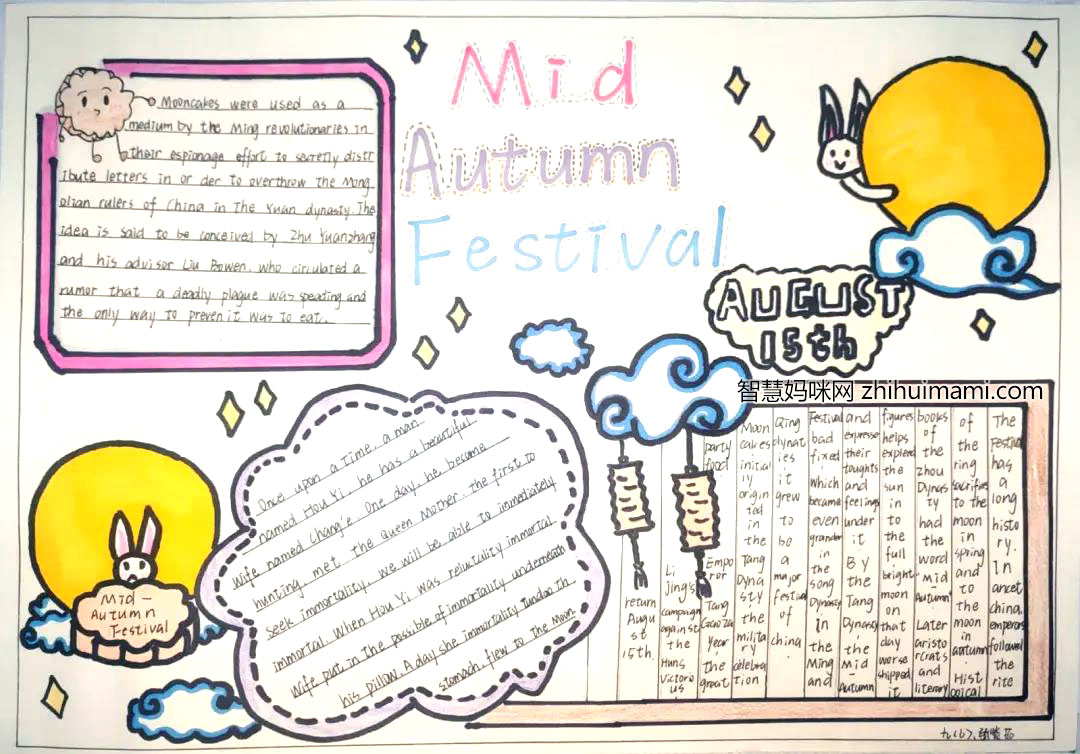 Mid
Autumn
Festival
AUGUST
15th
Mooncakes were used as a
medium by the Ming revolutionaries in
their espionage effort to secretly distr
ibute letters in or der to overthrow the Mong
olian rulers of China in The Yuan dynasty. The
idea is said to be conceived by Zhu Yuanzhang
and his advisor Liu Bowen, who circulated a
rumor that a deadly plague was speading and
the only way to preven.it was to eat.
智慧妈咪网 zhihuimami.com
Once upon a time, a man
named Hou Yi, he has a beautiful
wife named Chang'e. One day, he, become
hunting, met the Queen Mother, the first to
seek immortality, we will be able to immediately
immortal. When Hou Yi, was reluctality immortal,
wife put in the possible of immortality underneath
his pillow. A day she immortality Tundao th
stomach, flew to the Moon.
Mid-
Autumn
Festival
The Festival has a long histo ry. In ancet china, emperors followed the rite
of the ring sacrifies to the moon in spring and to the moon in autumn. Hist orical
books of the zhou Dynas ty had the word Mid Autumn. Later aristo rcrats and literary
figures helps explend the sun in to the full bright moon on that day worse shipped it
and expresse their toughts and feelings under it By the Tang Dynasty the Mid Autumn
Festival bad fixed which became even grander in the song Dynasty In the Ming and
Qing dynat ies it grew to be a major festial of china.
Moon cakes initial ly origin ted in the Tang Dyna sty the milita ry celebra tion
party food Empo ror Tang Gaoza Year the great
Li jing's campaign against the Huns Victorio us
return Augu st 15th.
九(6)